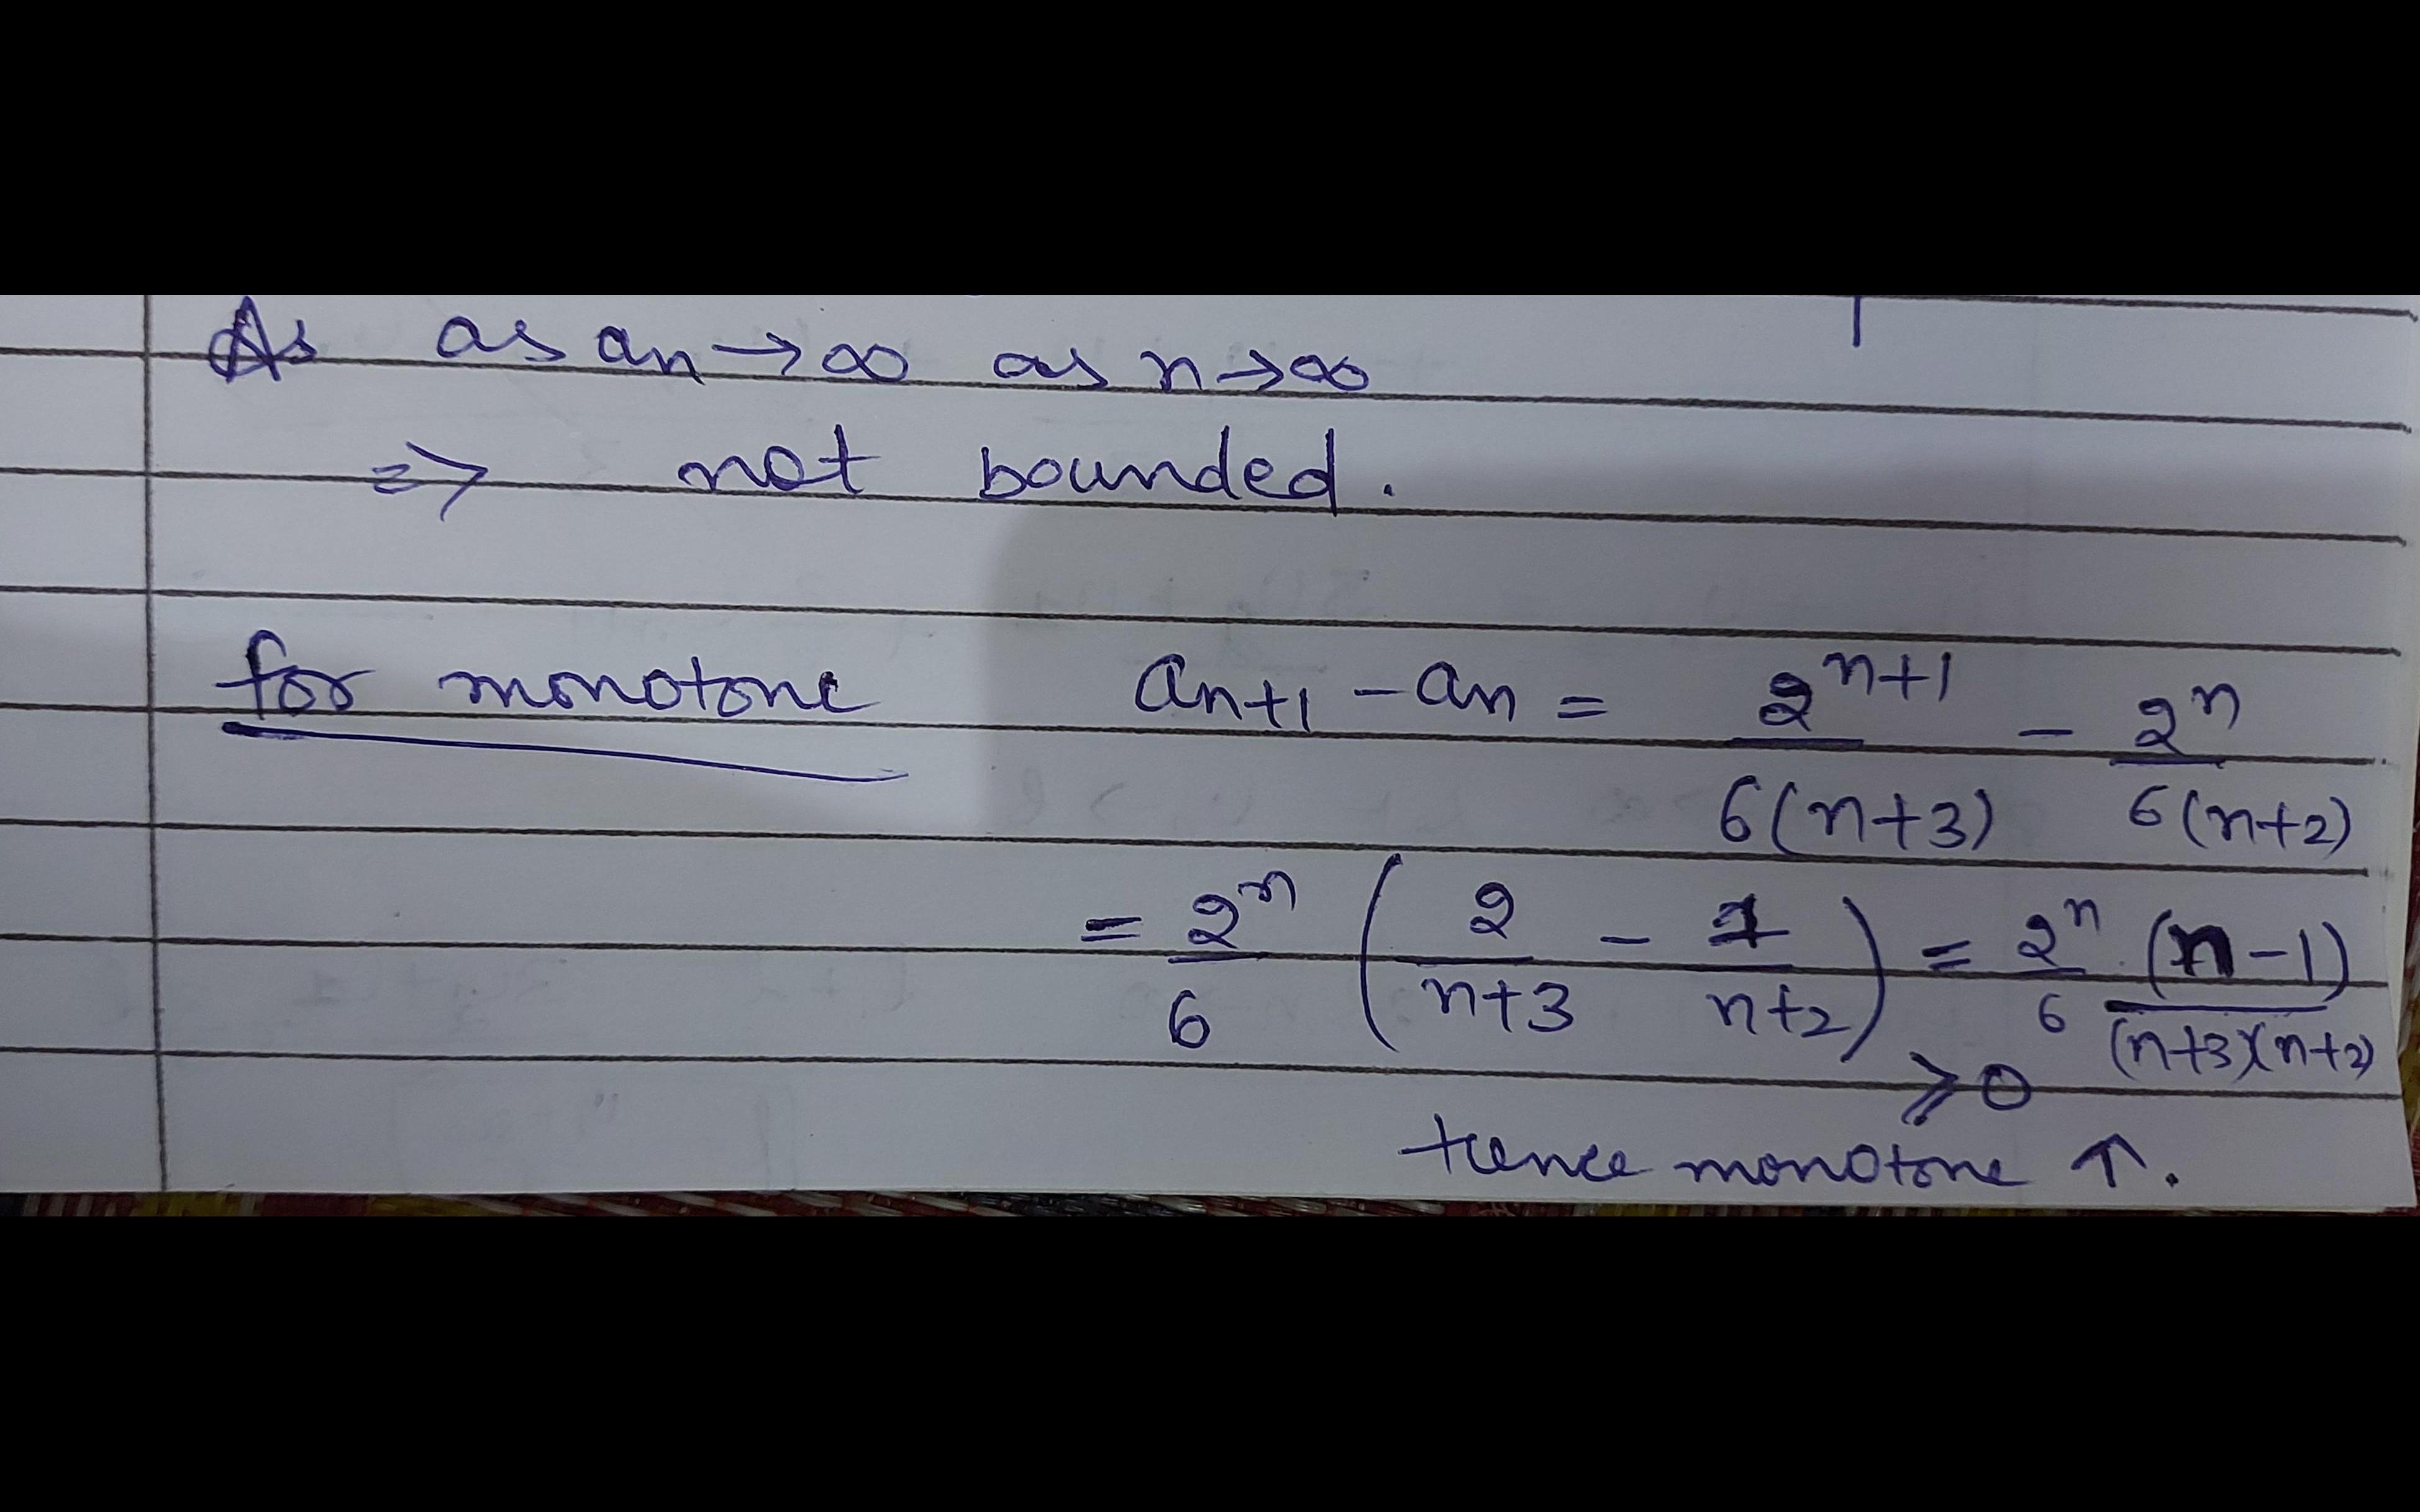 As as an→∞ as n→∞
=> not bounded.
for monotone an+1 - an = 2^(n+1)/6(n+3) - 2^n/6(n+2)
= 2^n/6 (2/(n+3) - 1/(n+2)) = 2^n/6 . (n-1)/(n+3)(n+2)
⩾0
Hence monotone ↑.